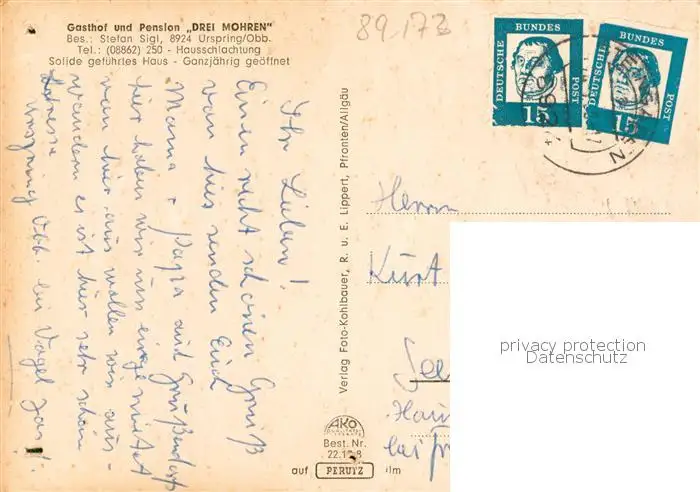 Gasthof und Pension „DREI MOHREN"
Bes.: Stefan Sigl, 8924 Urspring/Obb.
Tel.: (08862) 250 - Hausschlachtung
Solide geführtes Haus - Ganzjährig geöffnet
89.173
DEUTSCHE BUNDES POST
15
DEUTSCHE BUNDES POST
15
Ihr Lieben!
Einen recht schönen Gruß
von hier senden Euch
Mama + Papa aus
hier haben wir uns eingemietet
von hier aus wollen wir aus-
wandern es ist hier sehr schön
Adresse
Urspring Obb bei Vogel
Verlag Foto-Kohlbauer, R. u. E. Lippert, Pfronten/Allgäu
Herrn
Kurt
AKO
Best. Nr.
auf PERUTZ ilm
privacy protection
Datenschutz